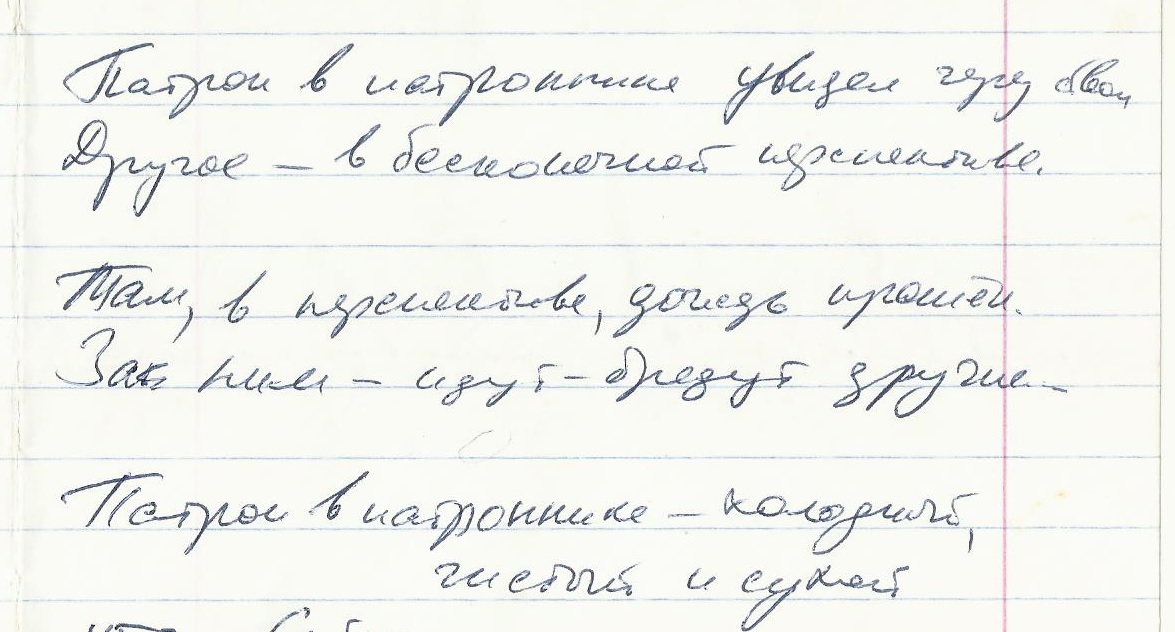 Патрон в патроннике увидел через ствол
Другое – в бесконечной перспективе.
Там, в перспективе, дождь прошёл.
За ним – идут-бредут другие –
Патрон в патроннике – холодный,
чистый и сухой